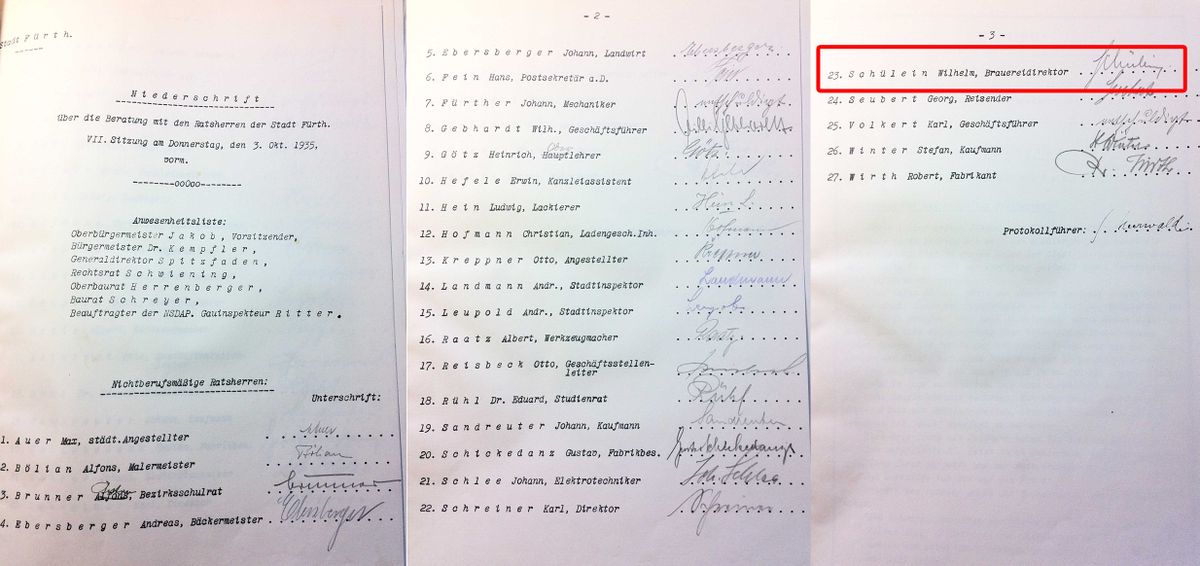 Stadt Fürth.
Niederschrift
über die Beratung mit den Ratsherren der Stadt Fürth.
VII. Sitzung am Donnerstag, den 3. Okt. 1935,
vorm.
-----ooOoo-----
Anwesenheitsliste:
Oberbürgermeister Jakob, Vorsitzender,
Bürgermeister Dr. Kempfler,
Generaldirektor Spitzfaden,
Rechtsrat Schwiening,
Oberbaurat Herrenberger,
Baurat Schreyer,
Beauftragter der NSDAP. Gauinspekteur Ritter.
Nichtberufsmäßige Ratsherren:
Unterschrift:
1. Auer Max, städt.Angestellter Auer
2. Bölian Alfons, Malermeister Bölian
3. Brunner Alfons, Bezirksschulrat Brunner
4. Ebersberger Andreas, Bäckermeister Ebersberger
- 2 -
5. Ebersberger Johann, Landwirt Ebersberger
6. Fein Hans, Postsekretär a.D.
7. Fürther Johann, Mechaniker entschuldigt
8. Gebhardt Wilh., Geschäftsführer
9. Götz Heinrich, Hauptlehrer Götz
10. Hefele Erwin, Kanzleiassistent
11. Hein Ludwig, Lackierer Hein L.
12. Hofmann Christian, Ladengesch.Inh. Hofmann
13. Kreppner Otto, Angestellter
14. Landmann Andr., Stadtinspektor Landmann
15. Leupold Andr., Stadtinspektor
16. Raatz Albert, Werkzeugmacher
17. Reisbeck Otto, Geschäftsstellen-
leiter
18. Rühl Dr. Eduard, Studienrat Rühl
19. Sandreuter Johann, Kaufmann Sandreuter
20. Schickedanz Gustav, Fabrikbes. Gustav Schickedanz
21. Schlee Johann, Elektrotechniker Joh. Schlee
22. Schreiner Karl, Direktor
- 3 -
23. Schülein Wilhelm, Brauereidirektor Schülein
24. Seubert Georg, Reisender
25. Volkert Karl, Geschäftsführer entschuldigt
26. Winter Stefan, Kaufmann Winter
27. Wirth Robert, Fabrikant R. Wirth
Protokollführer: